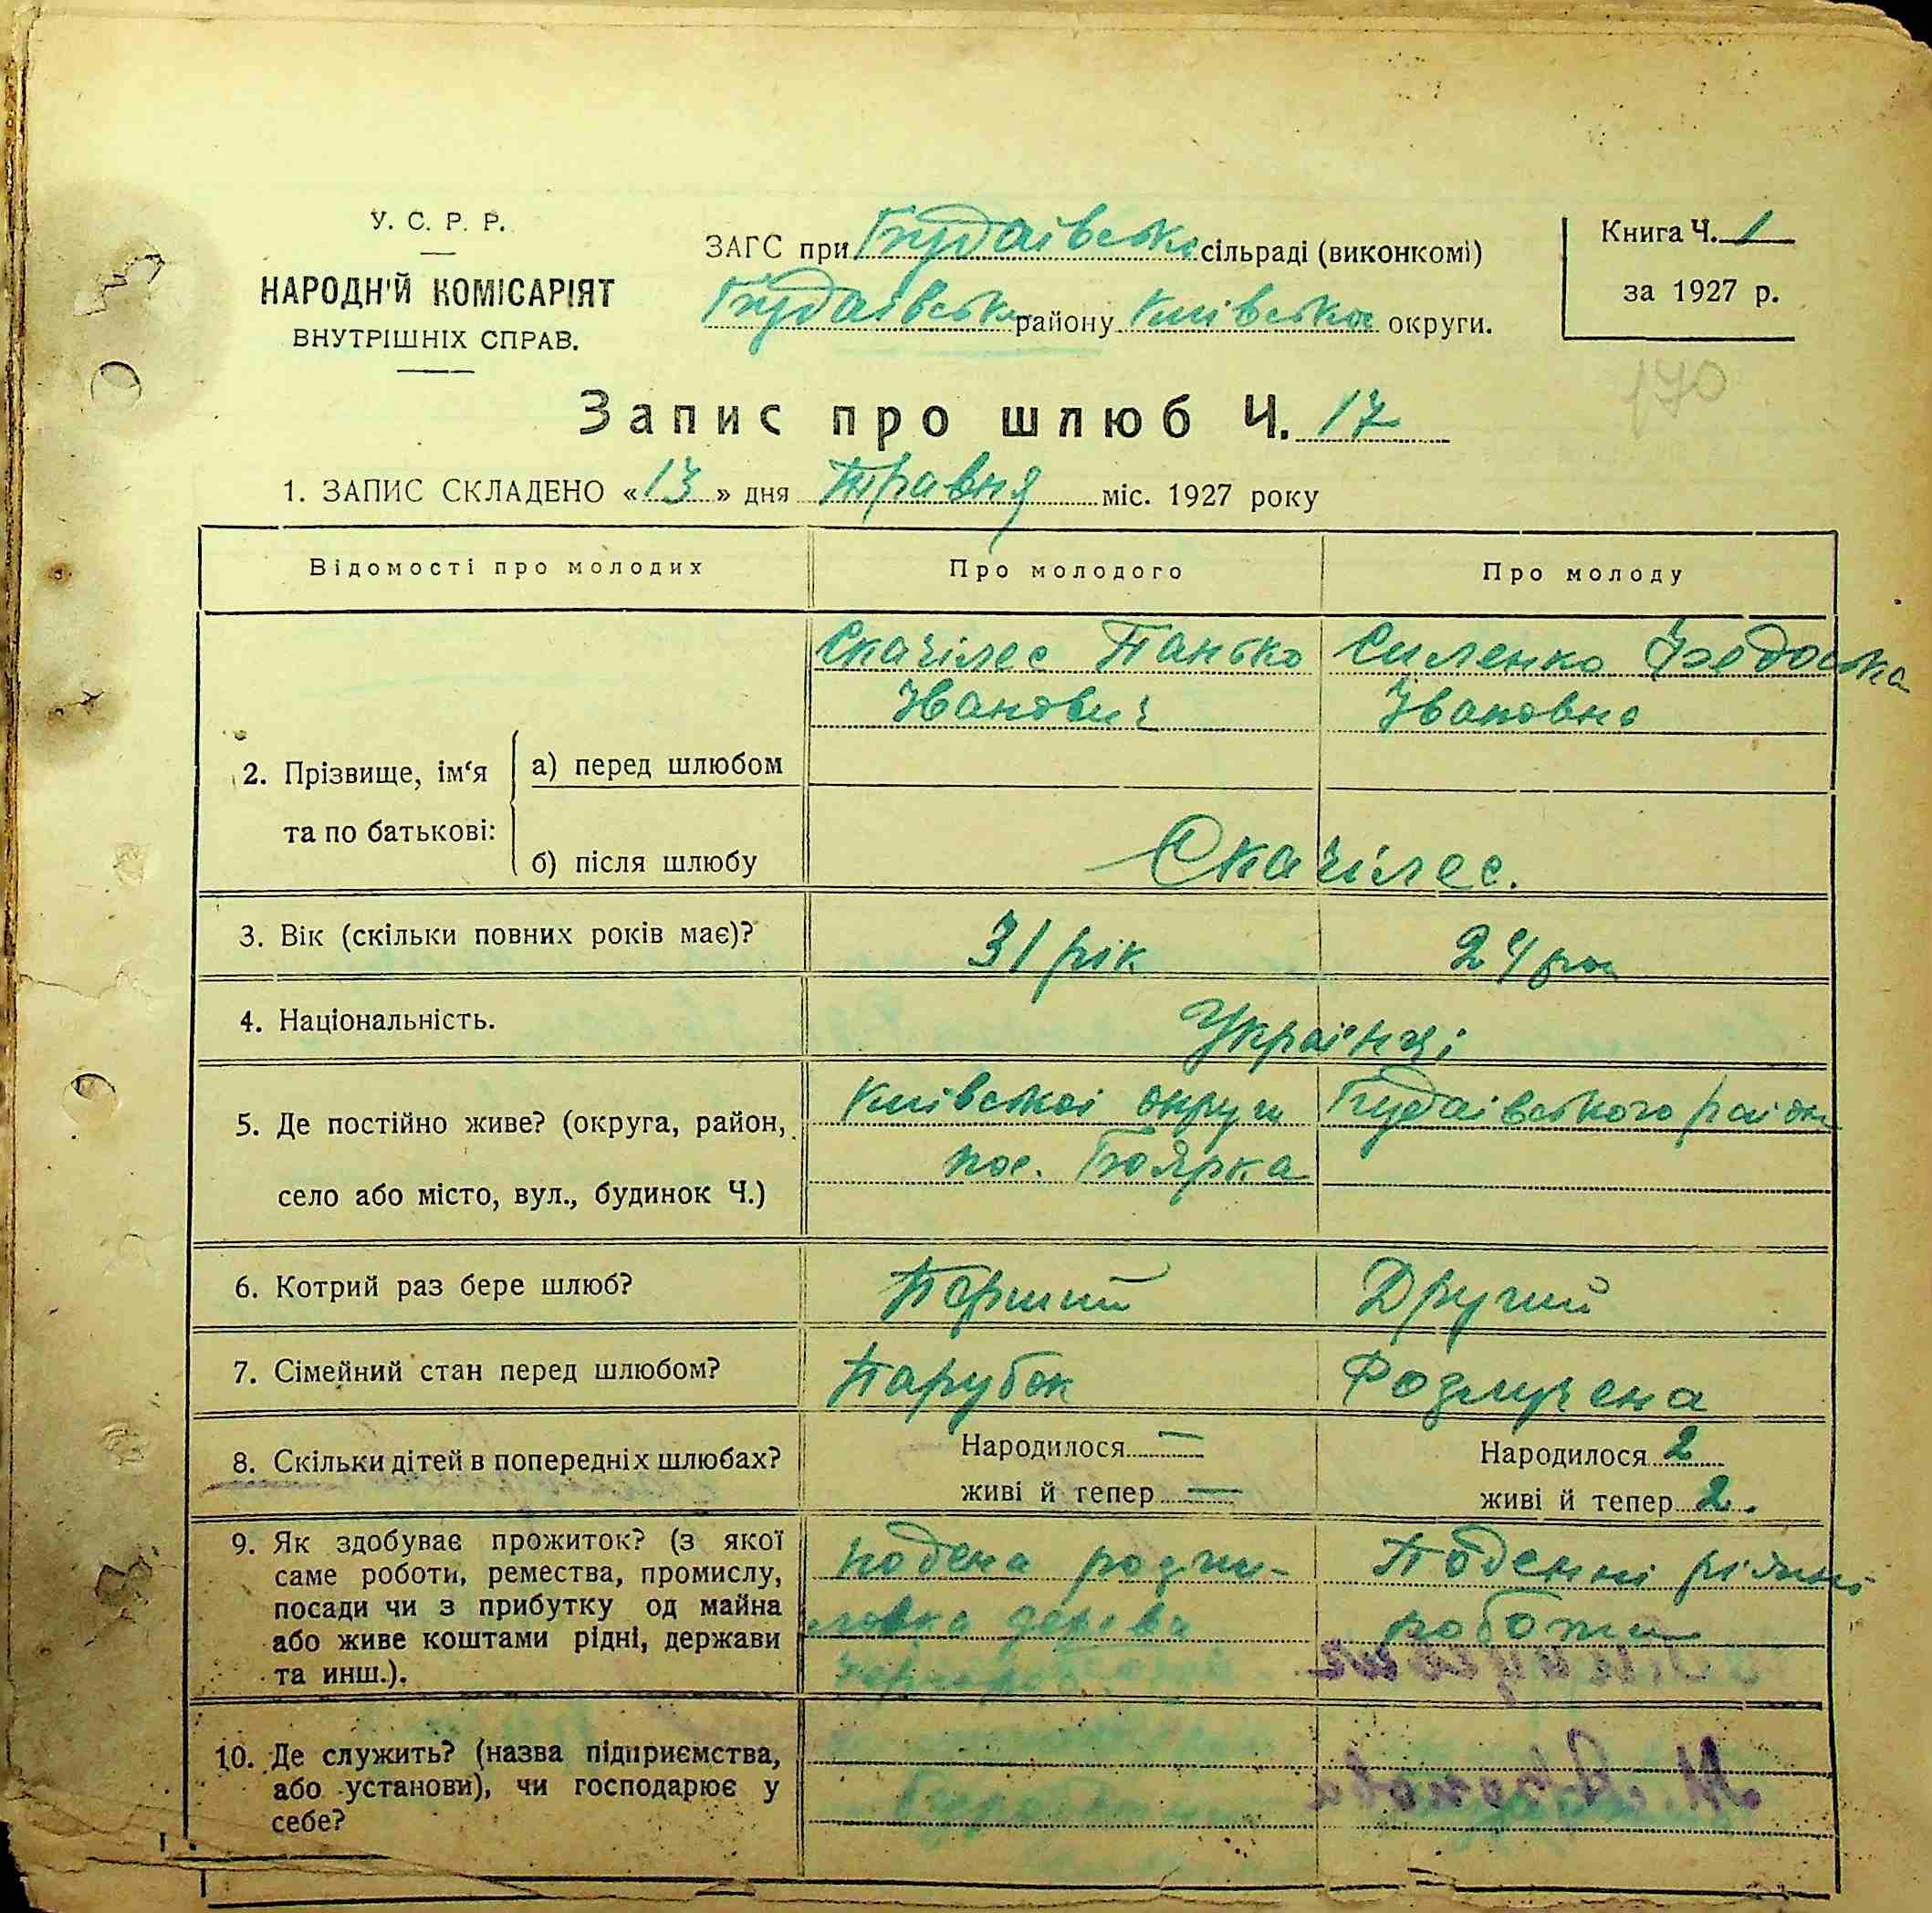 У. С. Р. Р.
НАРОДНІЙ КОМІСАРІЯТ
ВНУТРІШНІХ СПРАВ.
ЗАГС при Будаївські сільраді (виконкомі)
Будаївськ району Київської округи.
Книга Ч. 1
за 1927 р.
170
Запис про шлюб Ч. 17
1. ЗАПИС СКЛАДЕНО «13» дня Травня міс. 1927 року
Відомості про молодих
Про молодого
Про молоду
2. Прізвище, ім‘я та по батькові:
а) перед шлюбом
Скачілес Панько
Іванович
Силенко Федоська
Івановна
б) після шлюбу
Скачілес.
3. Вік (скільки повних років має)?
31 рік
24 рок
4. Національність.
Українці
5. Де постійно живе? (округа, район,
село або місто, вул., будинок Ч.)
Київської округи Будаівського району
пос. Боярка
6. Котрий раз бере шлюб?
Перший
Другий
7. Сімейний стан перед шлюбом?
Парубок
Розлучена
8. Скільки дітей в попередніх шлюбах?
Народилося —
живі й тепер —
Народилося 2
живі й тепер 2.
9. Як здобуває прожиток? (з якої
саме роботи, ремества, промислу,
посади чи з прибутку од майна
або живе коштами рідні, держави
та инш.).
подена розпи-
ловка дерева
Поденні ріжні
роботи
10. Де служить? (назва підприємства,
або установи), чи господарює у
себе?